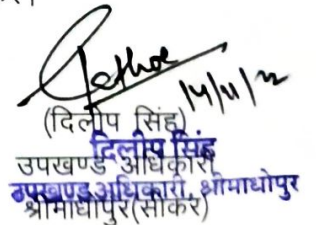 14/11/22
(दिलीप सिंह)
दिलीप सिंह
उपखण्ड अधिकारी
उपखण्ड अधिकारी, श्रीमाधोपुर
श्रीमाधोपुर(सीकर)